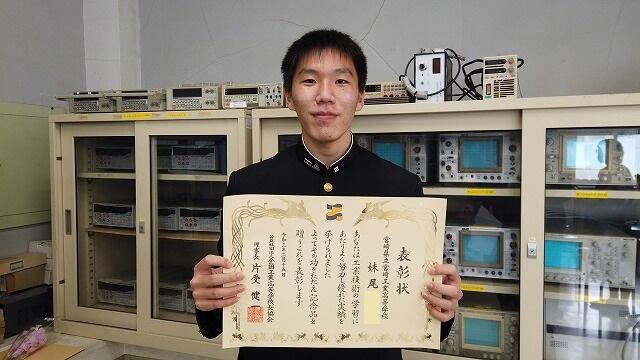 表彰状
宮崎県立宮崎工業高等学校
妹尾
あなたは工業技術の学習に
あたりよく努力し優れた実績を
挙げられました
よってその功をたたえ記念品を
贈りこれを表彰します
公益社団法人全国工業高等学校長協会
理事長 片受 健